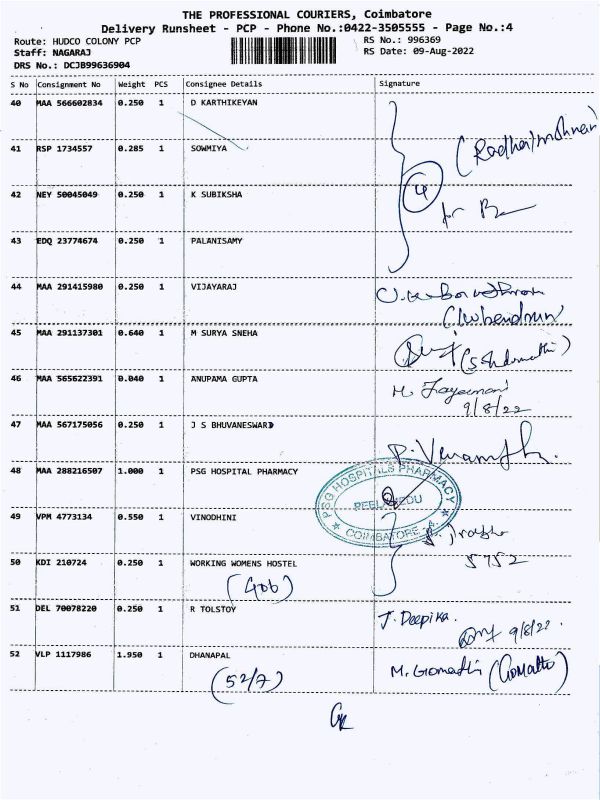 THE PROFESSIONAL COURIERS, Coimbatore
Delivery Runsheet - PCP - Phone No.:0422-3505555 - Page No.:4
Route: HUDCO COLONY PCP RS No.: 996369
Staff: NAGARAJ RS Date: 09-Aug-2022
DRS No.: DCJB99636904
S No Consignment No Weight PCS Consignee Details Signature
40 MAA 566602834 0.250 1 D KARTHIKEYAN
41 RSP 1734557 0.285 1 SOWMIYA
(Radha/mohnan)
42 NEY 50045049 0.250 1 K SUBIKSHA 4
for
43 EDQ 23774674 0.250 1 PALANISAMY
44 MAA 291415980 0.250 1 VIJAYARAJ
45 MAA 291137301 0.640 1 M SURYA SNEHA
46 MAA 565622391 0.040 1 ANUPAMA GUPTA
9/8/22
47 MAA 567175056 0.250 1 J S BHUVANESWARI
48 MAA 288216507 1.000 1 PSG HOSPITAL PHARMACY
PSG HOSPITALS PHARMACY
PEELAMEDU
COIMBATORE
49 VPM 4773134 0.550 1 VINODHINI
5752
50 KDI 210724 0.250 1 WORKING WOMENS HOSTEL
(406)
51 DEL 70078220 0.250 1 R TOLSTOY J. Deepika.
9/8/22.
52 VLP 1117986 1.950 1 DHANAPAL M. Gomathi
(52/7)